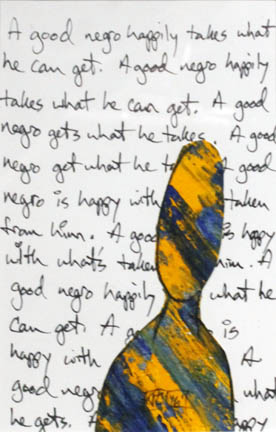 A good negro happily takes what
he can get. A good negro happily
takes what he can get. A good
negro gets what he takes. A good
negro get what he t good
negro is happy with taken
from him. A goo is happy
with what's taken him. A
good negro happily what he
can get. A g is
happy with A
good negr what
he gets. A appy